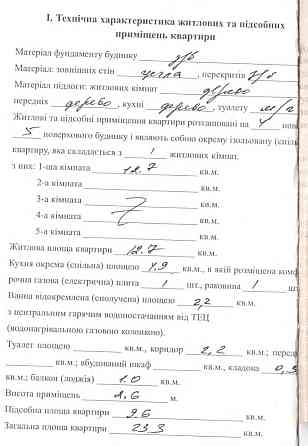 I. Технічна характеристика житлових та підсобних
приміщень квартири
Матеріал фундаменту будинку з/б
Матеріал: зовнішніх стін цегла, перекриття з/б
Матеріал підлоги: житлових кімнат дерево
передніх дерево, кухні дерево, туалету м/п
Житлові та підсобні приміщення квартири розташовані на
5 поверхового будинку і являють собою окрему ізольовану
квартиру, яка складається з 1 житлових кімнат.
з них: 1-ша кімната 12.7 кв.м.
2-а кімната кв.м.
3-а кімната кв.м.
4-а кімната кв.м.
5-а кімната кв.м.
Житлова площа квартири 12.7 кв.м.
Кухня окрема (спільна) площею кв.м., в якій розміщена
газова (електрична) плита 1 шт., раковина 1
Ванна відокремлена (сполучена) площею 2,2 кв.м.
з центральним гарячим водопостачанням від ТЕЦ
(водонагрівальною газовою колонкою).
Туалет площею кв.м., коридор 2,2 кв.м.;
кв.м.; вбудований шкаф кв.м., кладова 0,3
кв.м.; балкон (лоджія) 1.0 кв.м.
Висота приміщень м.
Підсобна площа квартири 9.6 кв.м.
Загальна площа квартири 23.3 кв.м.